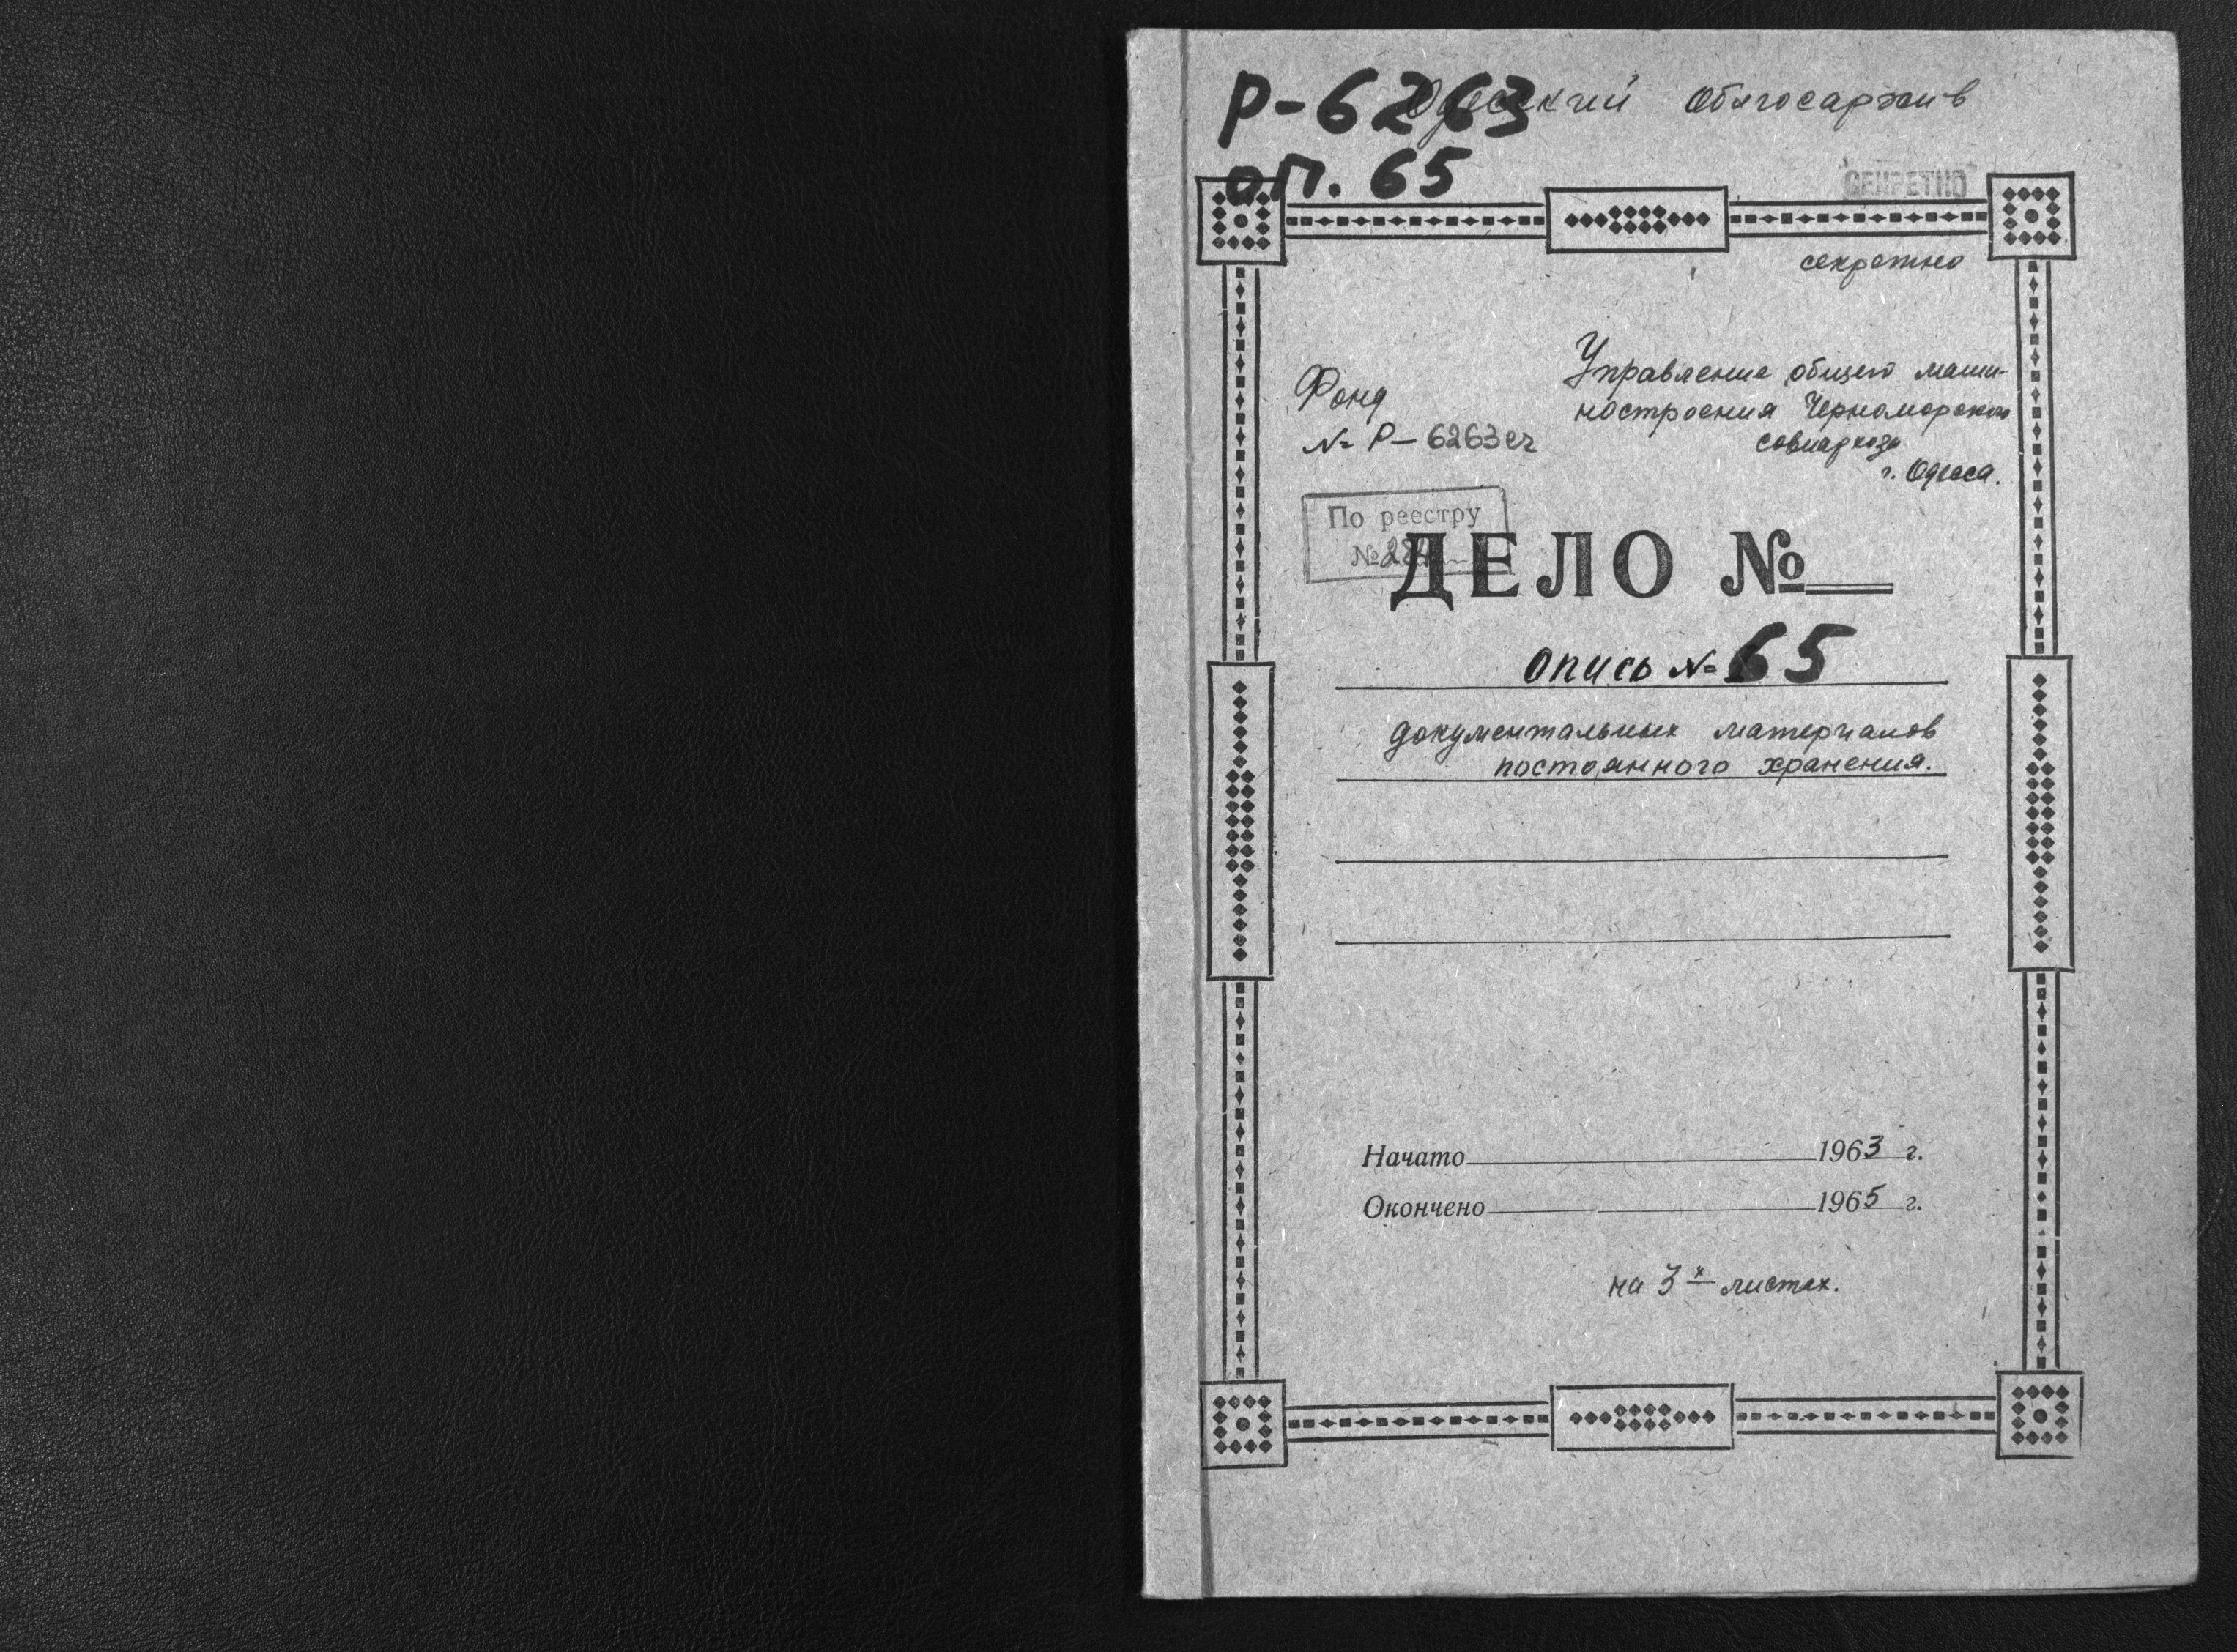 Р-6263
Одесский Облгосархив
оп. 65
СЕКРЕТНО
секретно
Фонд
№ Р-6263
Управление общего маши-
ностроения Черноморского
совнархоза
г. Одесса.
По реестру
№
ДЕЛО №
опись № 65
документальных материалов
постоянного хранения.
Начато 1963 г.
Окончено 1965 г.
на 3х листах.